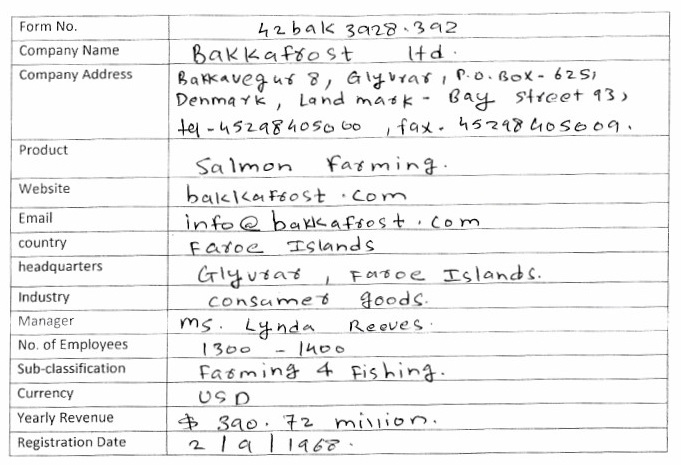 Form No. 42bak 3928.392
Company Name Bakkafrost ltd.
Company Address Bakkavegur 8, Glyvrar, P.O. Box - 625,
Denmark, Land mark - Bay street 93,
tel - 452984050 60, fax. 45298405009.
Product Salmon Farming.
Website bakkafrost.com
Email info@bakkafrost.com
country Faroe Islands
headquarters Glyvrar, Faroe Islands.
Industry consumer goods.
Manager ms. Lynda Reeves.
No. of Employees 1300 - 1400
Sub-classification Farming & Fishing.
Currency USD
Yearly Revenue $ 390.72 million.
Registration Date 2/9/1968.